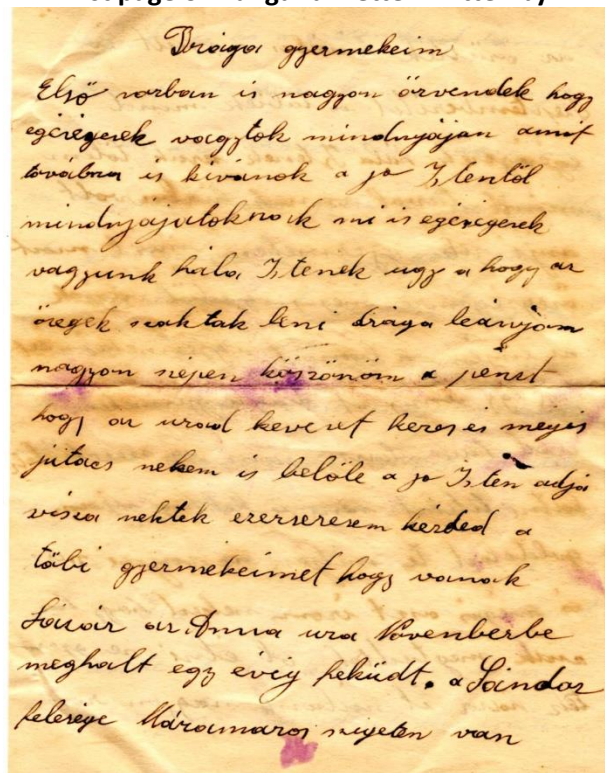 Drága gyermekeim
Első sorban is nagyon örvendek hogy
egécégesek vagytok mindnyájan amit
továbra is kivánok a jo Istentöl
mindnyájatoknak mi is egécégesek
vagyunk hála Istenek ugy a hogy az
öregek szaktak leni drága leányom
nagyon sépen köszönöm a pénzt
hogy az urad keveset keres és mégis
jutacs nekem is belöle a jo Isten adja
visza nektek ezerseresem kérded a
többi gyermekeimet hogy vanak
Lázár az Anna ura Novenberbe
meghalt egy évig feküdt. a Sándor
felesége Máramaros szigeten van